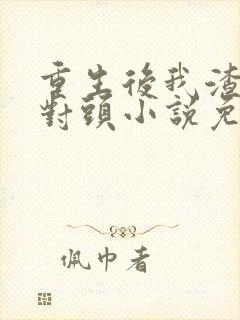 重生後我渣
對頭小說免
佩巾者